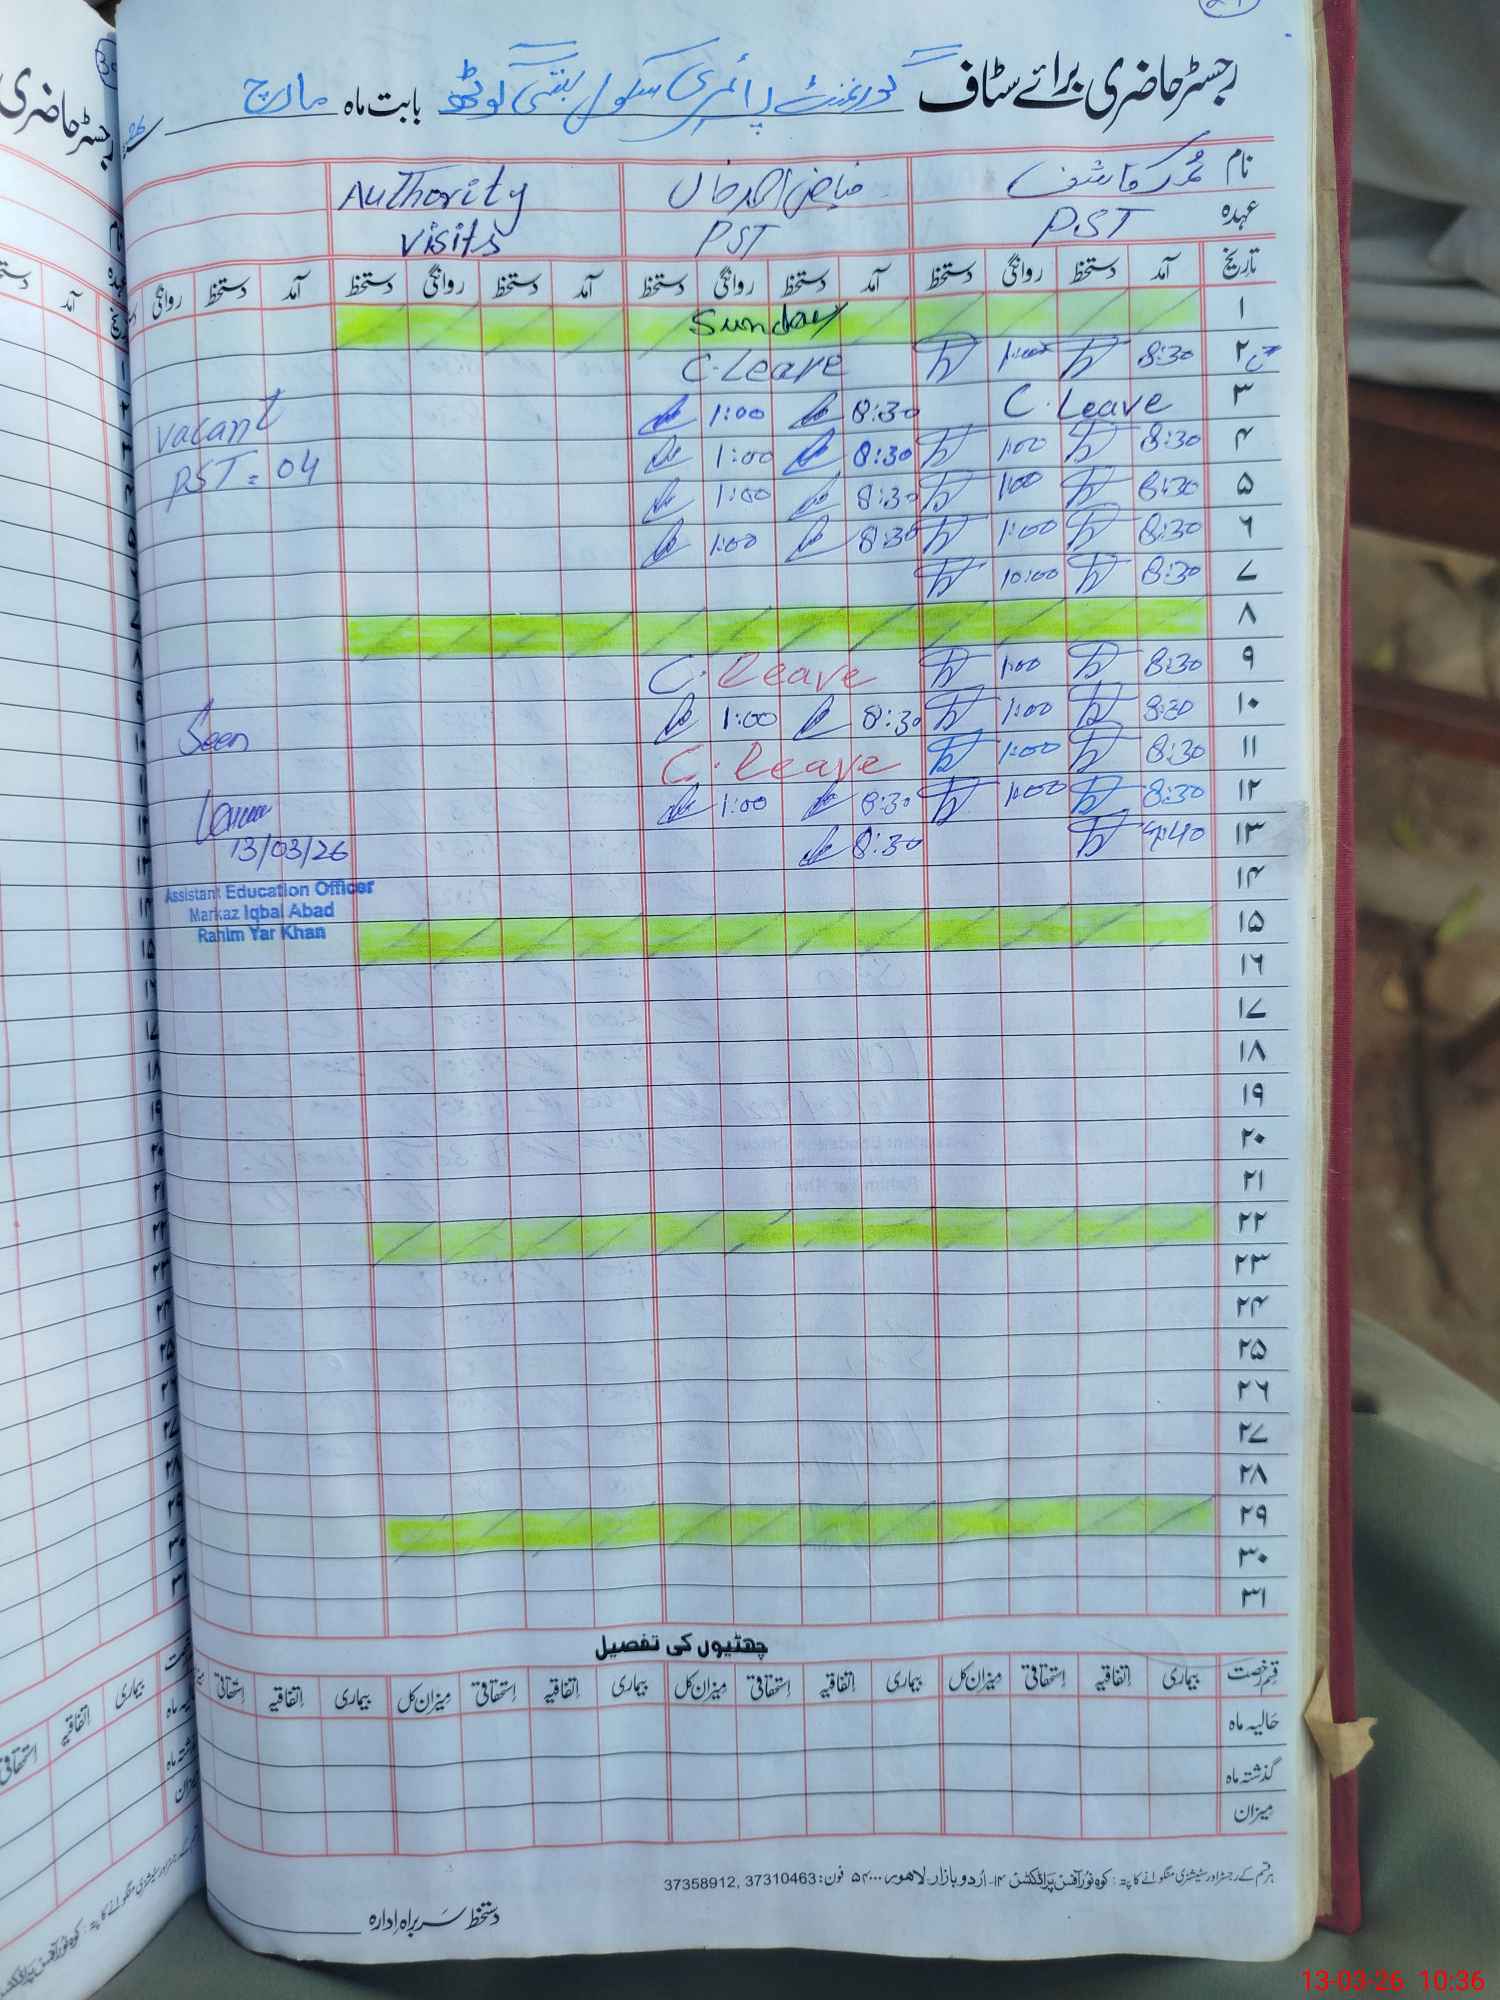 رجسٹر حاضری برائے سٹاف گورنمنٹ پرائمری سکول بستی گوٹھ بابت ماہ مارچ
نام محمد کاشف فیاض احمد خاں Authority
عہدہ PST PST Visits
تاریخ آمد دستخط روانگی دستخط آمد دستخط روانگی دستخط آمد دستخط روانگی دستخط آمد دستخط روانگی
۱ Sunday
۲ 8:30 1:00 C.Leave
۳ C.Leave 8:30 1:00
۴ 8:30 1:00 8:30 1:00
۵ 8:30 1:00 8:30 1:00
۶ 8:30 1:00 8:30 1:00
۷ 8:30 10:00
۸
۹ 8:30 1:00 C.Leave
۱۰ 8:30 1:00 8:30 1:00
۱۱ 8:30 1:00 C.Leave
۱۲ 8:30 1:00 8:30 1:00
۱۳ 8:30
۱۴
۱۵
۱۶
۱۷
۱۸
۱۹
۲۰
۲۱
۲۲
۲۳
۲۴
۲۵
۲۶
۲۷
۲۸
۲۹
۳۰
۳۱
Vacant
PST = 04
Seen
13/03/26
Assistant Education Officer
Markaz Iqbal Abad
Rahim Yar Khan
چھٹیوں کی تفصیل
قسم رخصت بیماری اتفاقیہ استحقاقی میزان کل بیماری اتفاقیہ استحقاقی میزان کل بیماری اتفاقیہ استحقاقی میزان کل بیماری اتفاقیہ استحقاقی
حالیہ ماہ
گذشتہ ماہ
میزان
ہر قسم کے رجسٹر اور سٹیشنری منگوانے کا پتہ: کوہ نور آفس پراڈکٹس ۱۴-اردو بازار، لاہور ۵۴۰۰۰ فون: 37310463 ,37358912
دستخط سربراہ ادارہ
13-03-26 10:36